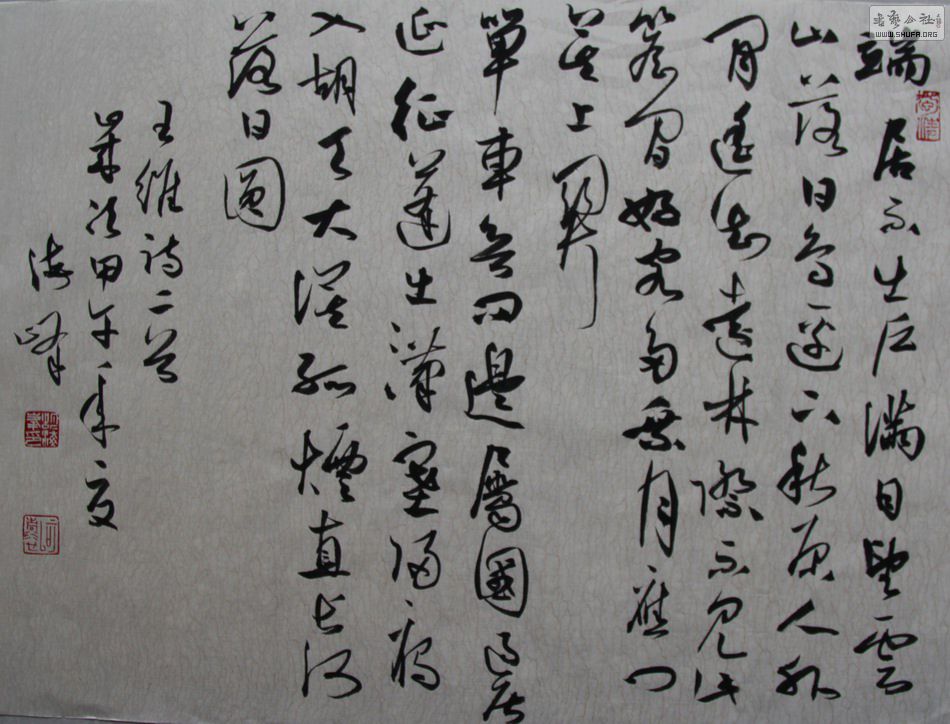 端居不出户满目望雲
山落日鸟邊下秋原人外
閒遥知遠林際不見此
簷间好客多乘月應门
莫上關
單車欲问邊屬國過居
延征蓬出漢塞歸雁
入胡天大漠孤煙直长河
落日圓
王維诗二首
歲次甲午年夏
海峰
书艺公社
WWW.SHUFA.ORG